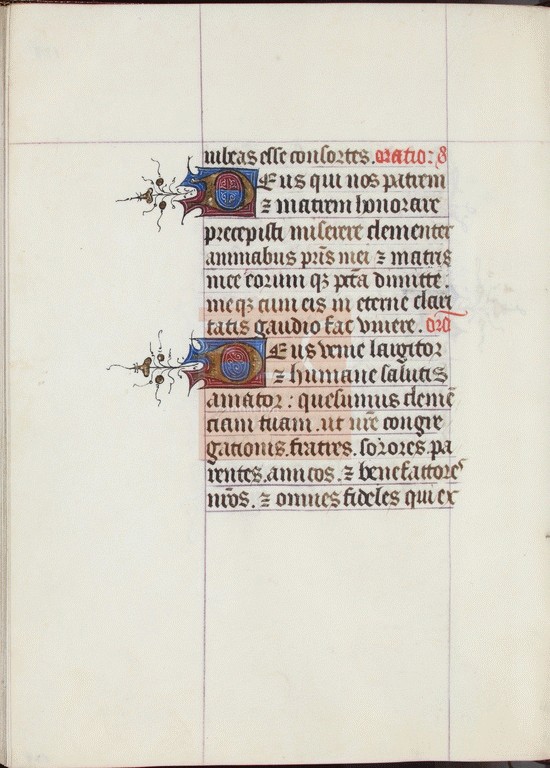 iubeas esse consortes. oratio:
Deus qui nos patrem
⁊ matrem honorare
precepisti miserere clementer
animabus pr̄is mei ⁊ matris
mee eorum qꝫ pc̄ta dimitte.
meqꝫ cum eis in eterne clari
tatis gaudio fac vivere. oro̅
Deus venie largitor
⁊ humane salutis
amator : quesumus cleme̅
ciam tuam. ut nr̄e congre
gationis fratres. sorores. pa
rentes. amicos. ⁊ benefactores
nr̄os. ⁊ omnes fideles qui ex